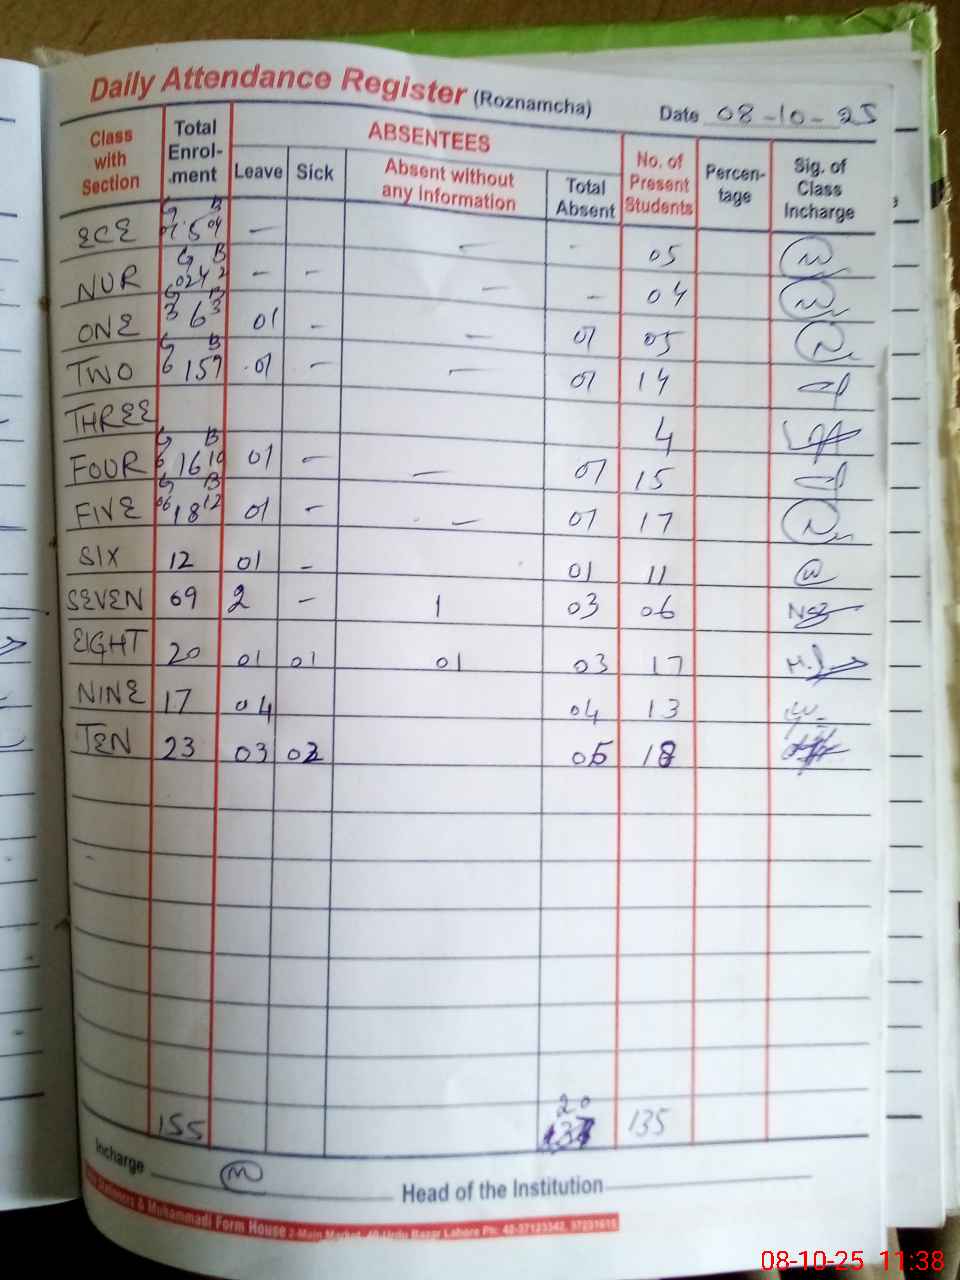 Daily Attendance Register (Roznamcha) Date 08-10-25
Class with Section Total Enrol-.ment ABSENTEES No. of Present Students Percen-tage Sig. of Class Incharge
Leave Sick Absent without any information Total Absent
G B
ECE 5 04 — — - 05
G B
NUR 02 4 2 – – — – 04
G B
ONE 3 6 3 01 – — 01 05
G B
TWO 6 15 9 01 – — 01 14
THREE 4
G B
FOUR 6 16 10 01 – — 01 15
G B
FIVE 06 18 12 01 – — 01 17
SIX 12 01 – 01 11
SEVEN 09 2 – 1 03 06
EIGHT 20 01 01 01 03 17
NINE 17 04 04 13
TEN 23 03 02 05 18
20
155 135
Incharge Head of the Institution
Stationers & Muhammadi Form House 2-Main Market, 40-Urdu Bazar Lahore Ph: 42-37123342, 37231615
08-10-25 11:38